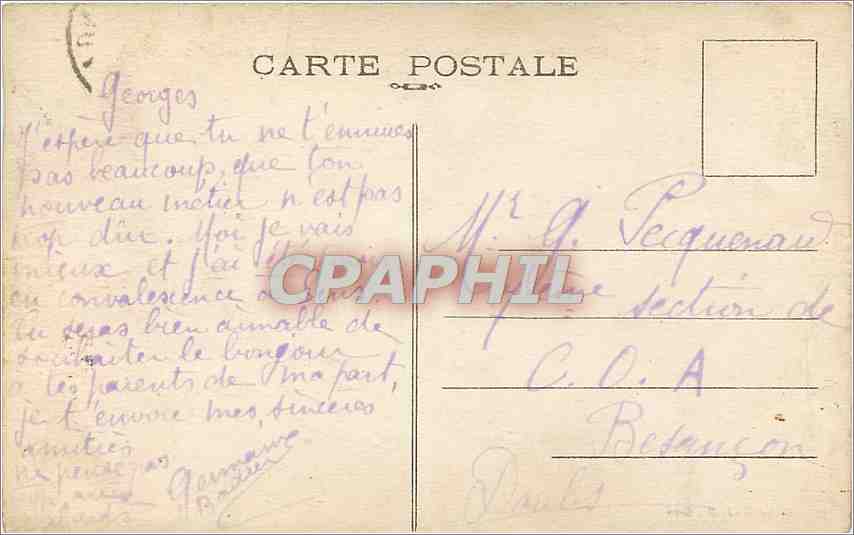 CARTE POSTALE
Georges
J'espère que tu ne t'ennuies
pas beaucoup, que ton
nouveau métier n'est pas
trop dur. Moi je vais
mieux et j'ai été
en convalescence à
Tu seras bien aimable de
souhaiter le bonjour
à tes parents de ma part,
je t'envoie mes sincères
amitiés
ne
Germaine
CPAPHIL
Mr G. Pecquenaud
section de
C. O. A
Besançon
Doubs